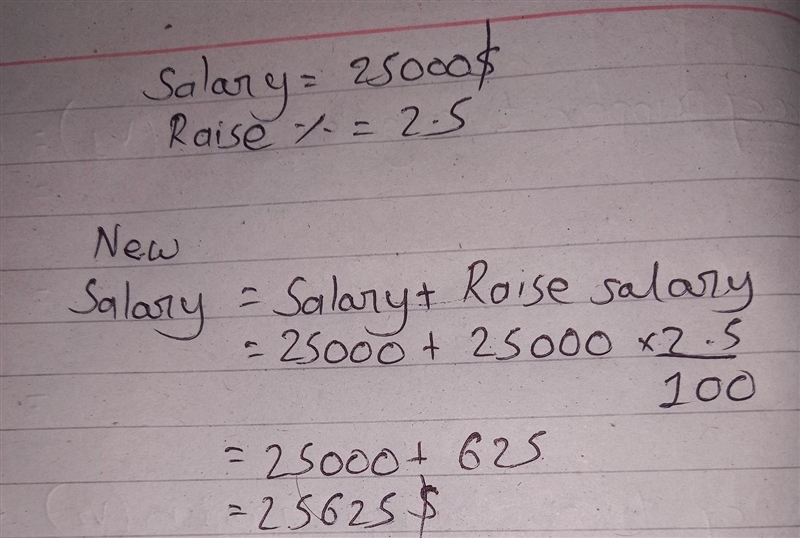 Salary = 25000$
Raise % = 2.5
New
Salary = Salary + Raise salary
= 25000 + 25000 × 2.5
100
= 25000 + 625
= 25625$